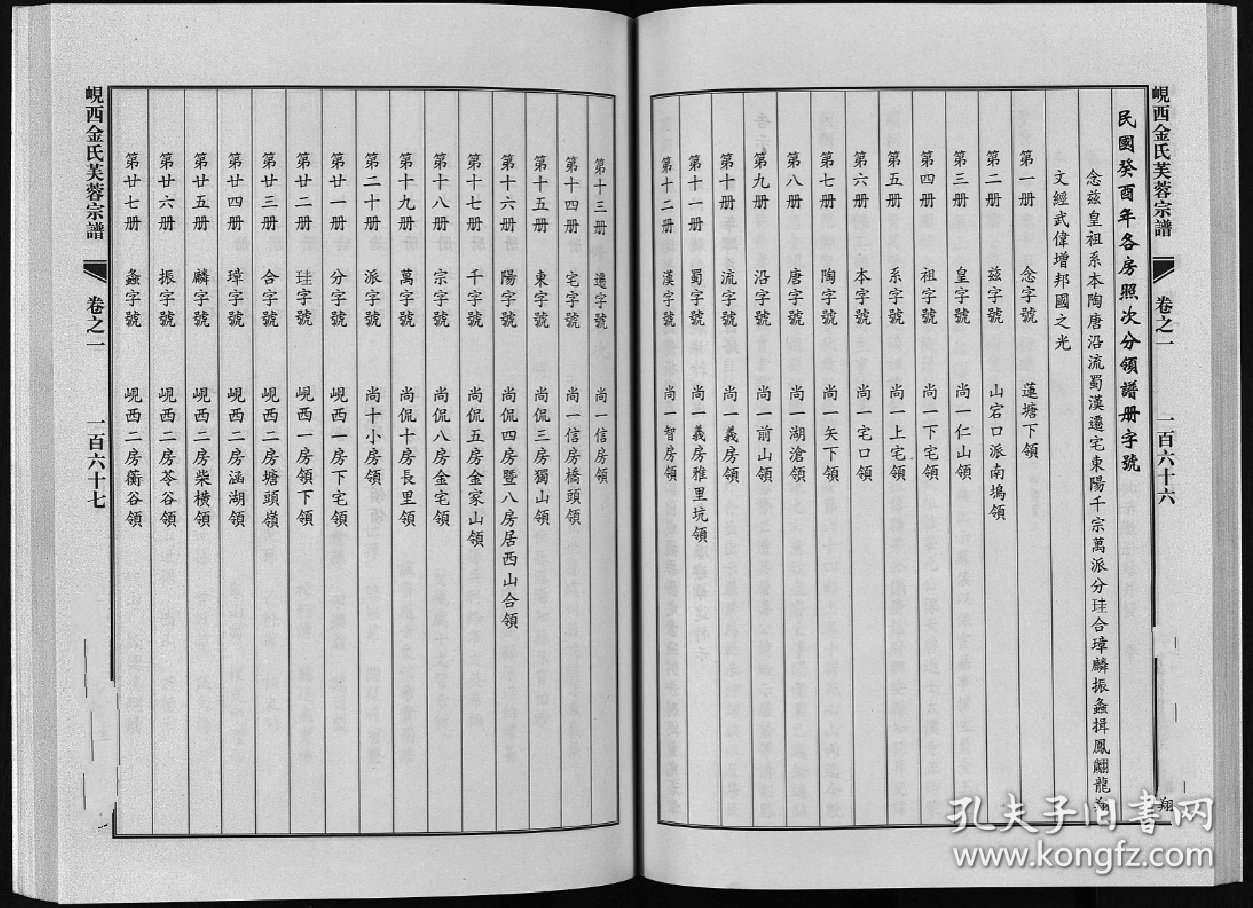 峴西金氏芙蓉宗譜
卷之一
一百六十六
民國癸酉年各房照次分領譜册字號
念兹皇祖系本陶唐沿流蜀漢遷宅東陽千宗萬派分珪合璋麟振螽揖鳳翽龍翔
文經武偉增邦國之光
第一册 念字號 蓮塘下領
第二册 兹字號 山宕口派南塢領
第三册 皇字號 尚一仁山領
第四册 祖字號 尚一下宅領
第五册 系字號 尚一上宅領
第六册 本字號 尚一宅口領
第七册 陶字號 尚一矢下領
第八册 唐字號 尚一湖滄領
第九册 沿字號 尚一前山領
第十册 流字號 尚一義房領
第十一册 蜀字號 尚一義房雅里坑領
第十二册 漢字號 尚一智房領
第十三册 遷字號 尚一信房領
第十四册 宅字號 尚一信房橋頭領
第十五册 東字號 尚侃三房獨山領
第十六册 陽字號 尚侃四房暨八房居西山合領
第十七册 千字號 尚侃五房金家山領
第十八册 宗字號 尚侃八房金宅領
第十九册 萬字號 尚侃十房長里領
第二十册 派字號 尚十小房領
第廿一册 分字號 峴西一房下宅領
第廿二册 珪字號 峴西一房領下領
第廿三册 合字號 峴西二房塘頭嶺
第廿四册 璋字號 峴西二房涵湖領
第廿五册 麟字號 峴西二房柴橫領
第廿六册 振字號 峴西二房苓谷領
第廿七册 螽字號 峴西二房蘅谷領
峴西金氏芙蓉宗譜
卷之一
一百六十七
翔
孔夫子旧书网
www.kongfz.com